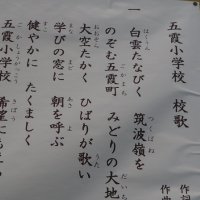 五霞小学校 校歌
作詞
作曲
一
白雲たなびく 筑波嶺を
のぞむ五霞町 みどりの大地
大空たかく ひばりが歌い
学びの窓に 朝を呼ぶ
健やかに たくましく
五霞小学校 希望に